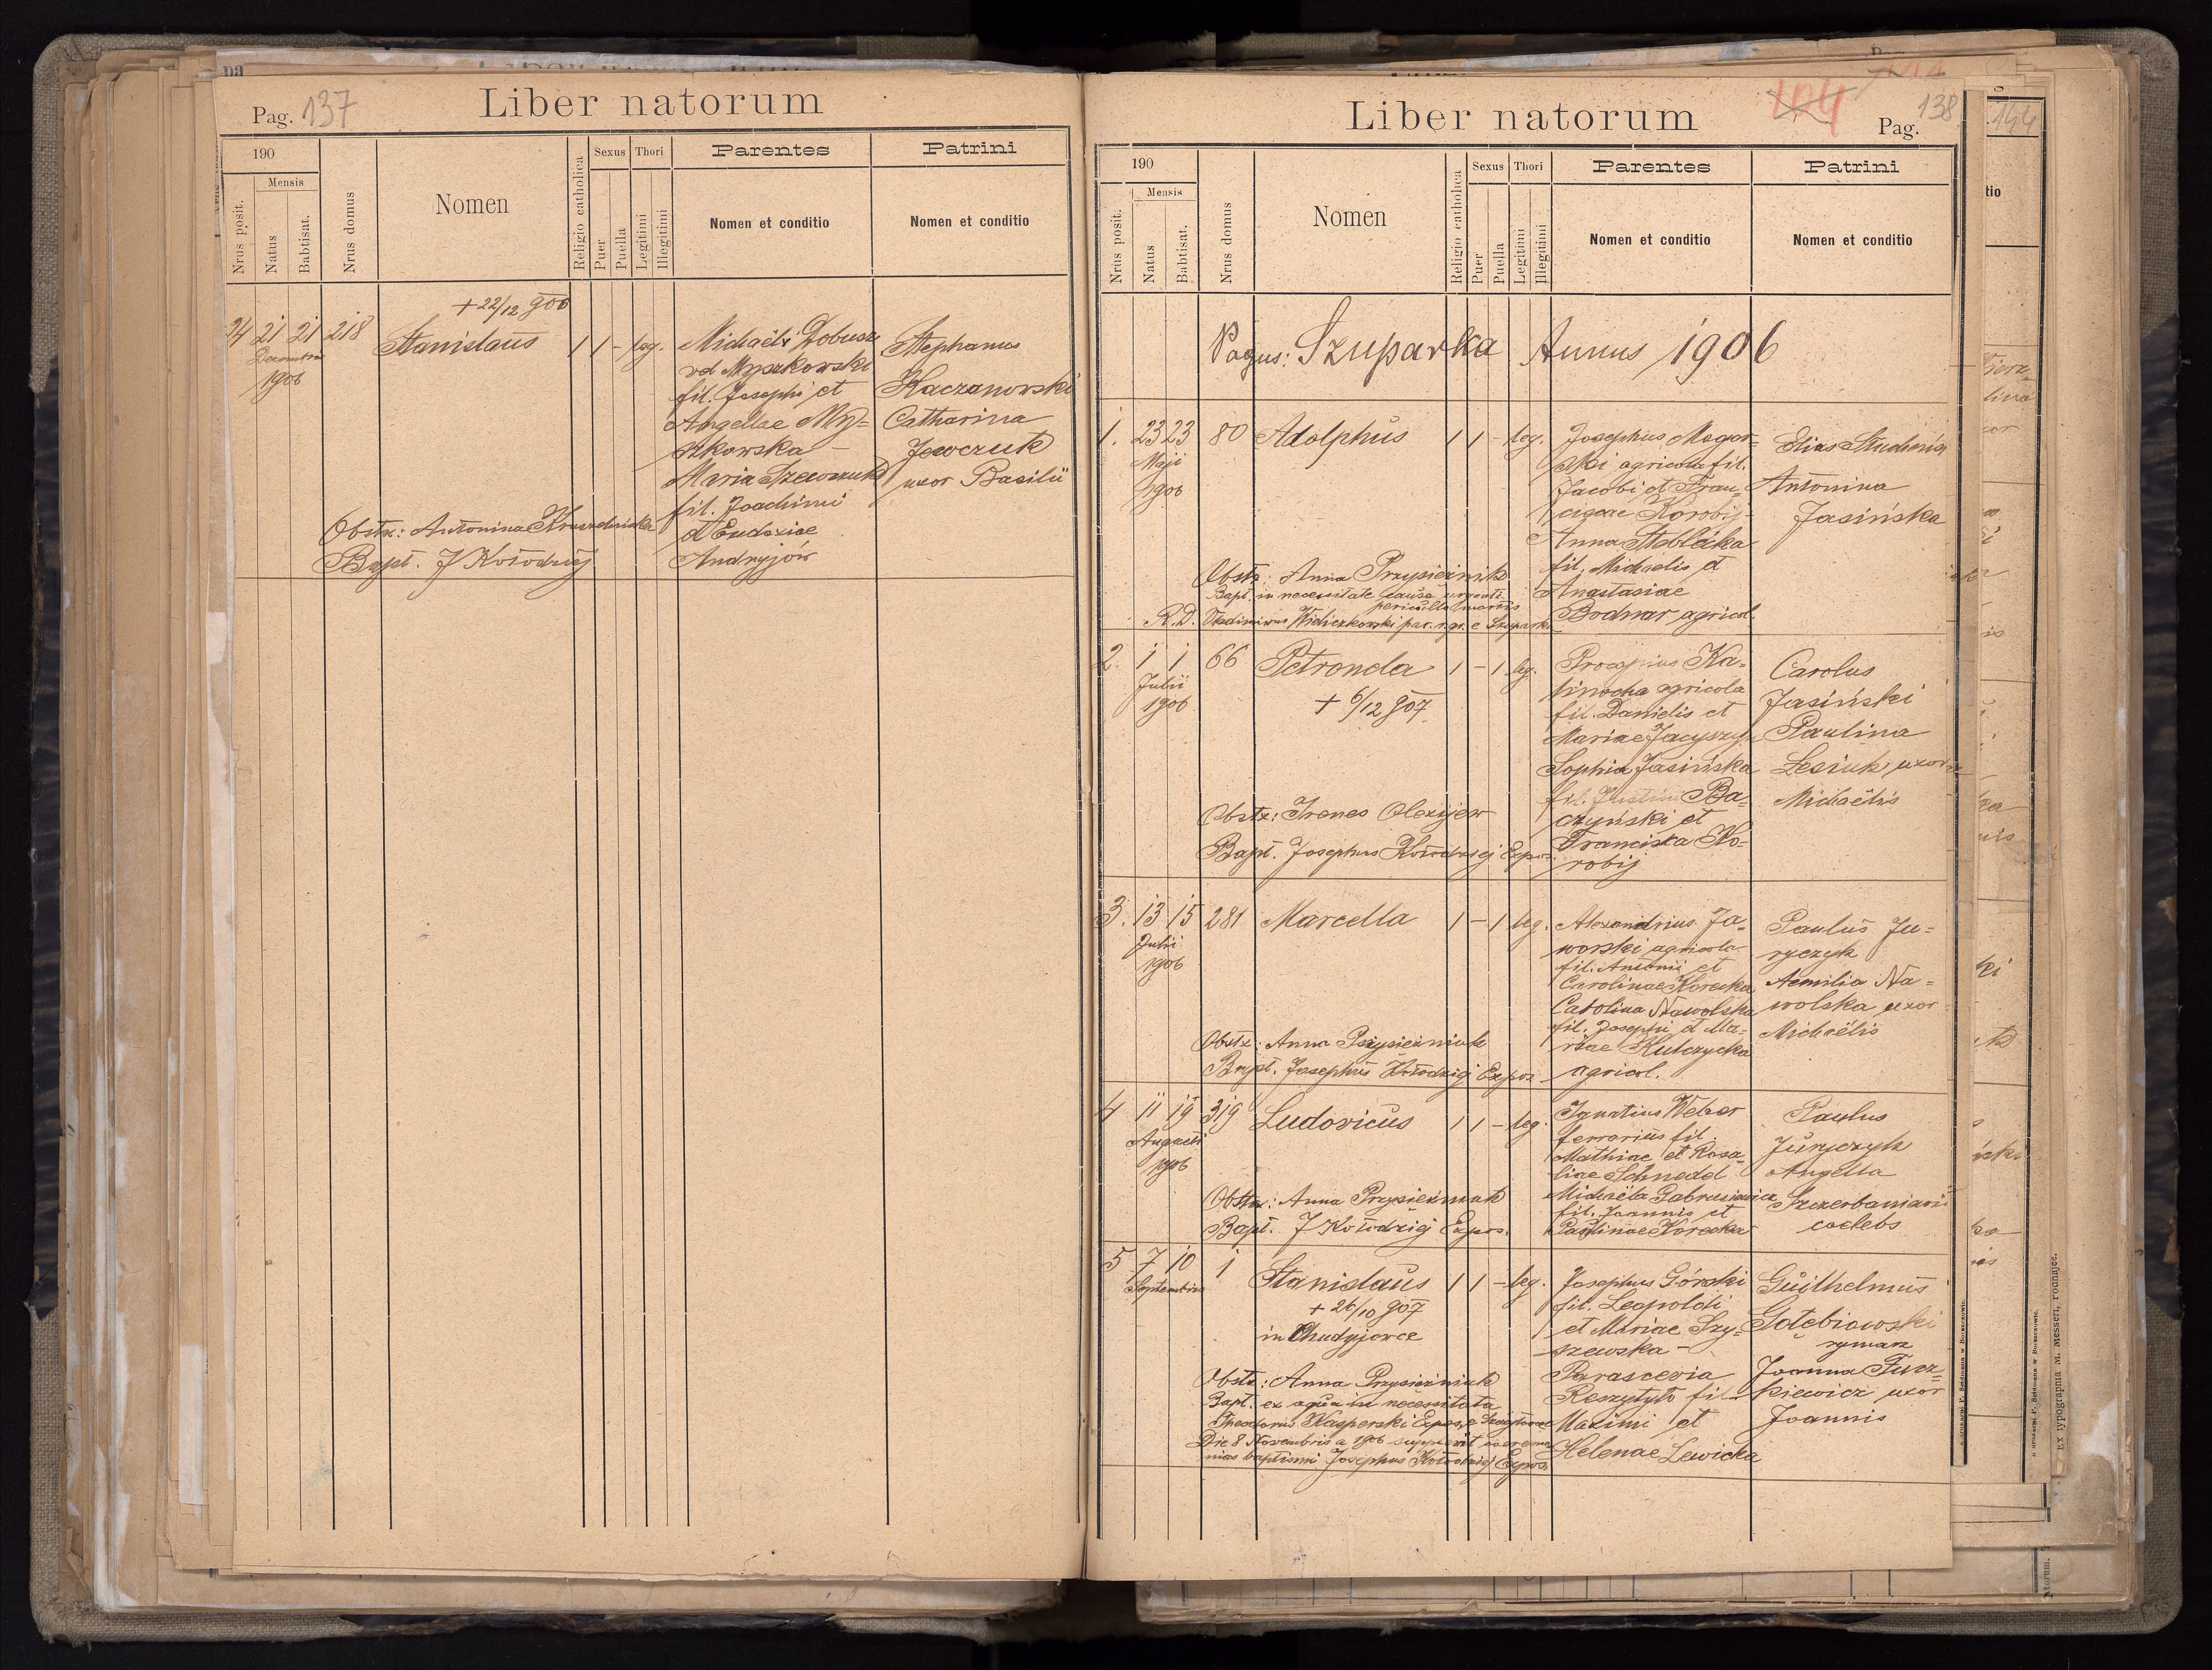 Pag. 137
Liber natorum
190
Mensis
Nrus posit.
Natus
Babtisat.
Nrus domus
Nomen
Religio catholica
Sexus
Puer
Puella
Thori
Legitimi
Illegitimi
Parentes
Nomen et conditio
Patrini
Nomen et conditio
+ 22/12 906
24 21 21 218 Stanislaus 1 1 - leg.
Decembris
1906
Michaël Dobusz
vel Myszkowski
fil. Josephi et
Angellae My=
szkowska -
Maria Szewczuk
fil. Joachimi
et Eudoxiae
Andryjów
Stephanus
Kaczanowski
Catharina
Jowczuk
uxor Basilii
Obstx: Antonina
Bapt. J Kołodziej
Liber natorum
104
Pag. 138
190
Mensis
Nrus posit.
Natus
Babtisat.
Nrus domus
Nomen
Religio catholica
Sexus
Puer
Puella
Thori
Legitimi
Illegitimi
Parentes
Nomen et conditio
Patrini
Nomen et conditio
Pagus: Szuparka Annus 1906
1. 23 23 80 Adolphus 1 1 - leg.
Maji
1906
Josephus Magor=
ski agricola fil.
Jacobi et Fran=
ciscae Korobij -
Anna Steblecka
fil. Michaelis et
Anastasiae
Bodnar agricol.
Elias
Antonina
Jasińska
Obstx: Anna Przysiężniuk
Bapt. in necessitate causa urgentis
periculo mortis
R.D. Vladimirus par. r. gr. e Szuparka
2. 1 1 66 Petronela 1 - 1 leg.
Julii
1906
+ 6/12 907.
Procopius Ka=
linocha agricola
fil. Danielis et
Mariae Jacyszyn
Sophia Jasińska
fil. Justini Ba=
czyński et
Franciska Ko=
robij
Carolus
Jasiński
Paulina
Lesiuk uxor
Michaëlis
Obstx: Irenes Olexijew
Bapt. Josephus Kołodziej Expos.
3. 13 15 281 Marcella 1 - 1 leg.
Julii
1906
Alexandrius Ja=
worski agricola
fil. Antonii et
Carolinae Korecka
Carolina Nawolska
fil. Josephi et Ma=
riae Kulczycka
agricol.
Paulus Ju=
ryczyk
Aemilia Na=
wolska uxor
Michaëlis
Obstx: Anna Przysiężniuk
Bapt. Josephus Kołodziej Expos.
4 11 19 319 Ludovicus 1 1 - leg.
Augusti
1906
Ignatius Weber
ferrarius fil.
Mathiae et Rosa=
liae Schnedd
Michaëla Gabrusiewicz
fil. Joannis et
Paulinae Korecka
Paulus
Juryczyk
Angella
Szczerbaniewicz
coelebs
Obstx: Anna Przysiężniuk
Bapt. J Kołodziej Expos.
5 7 10 1 Stanislaus 1 1 - leg.
Septembris
+ 26/10 907
in Chudyjowce
Josephus Górski
fil. Leopoldi
et Mariae Szy=
szewska -
Parascevia
Reszytyło fil.
Maximi et
Helenae Lewicka
Guilhelmus
Gołębiowski
rymarz
Joanna Turz=
kiewicz uxor
Joannis
Obstx: Anna Przysiężniuk
Bapt. ex aqua in necessitate
Theodorus Kasperski Expos. e
Die 8 Novembris a 1906 supplevit caeremo
nias baptismi Josephus Kołodziej Expos.
144